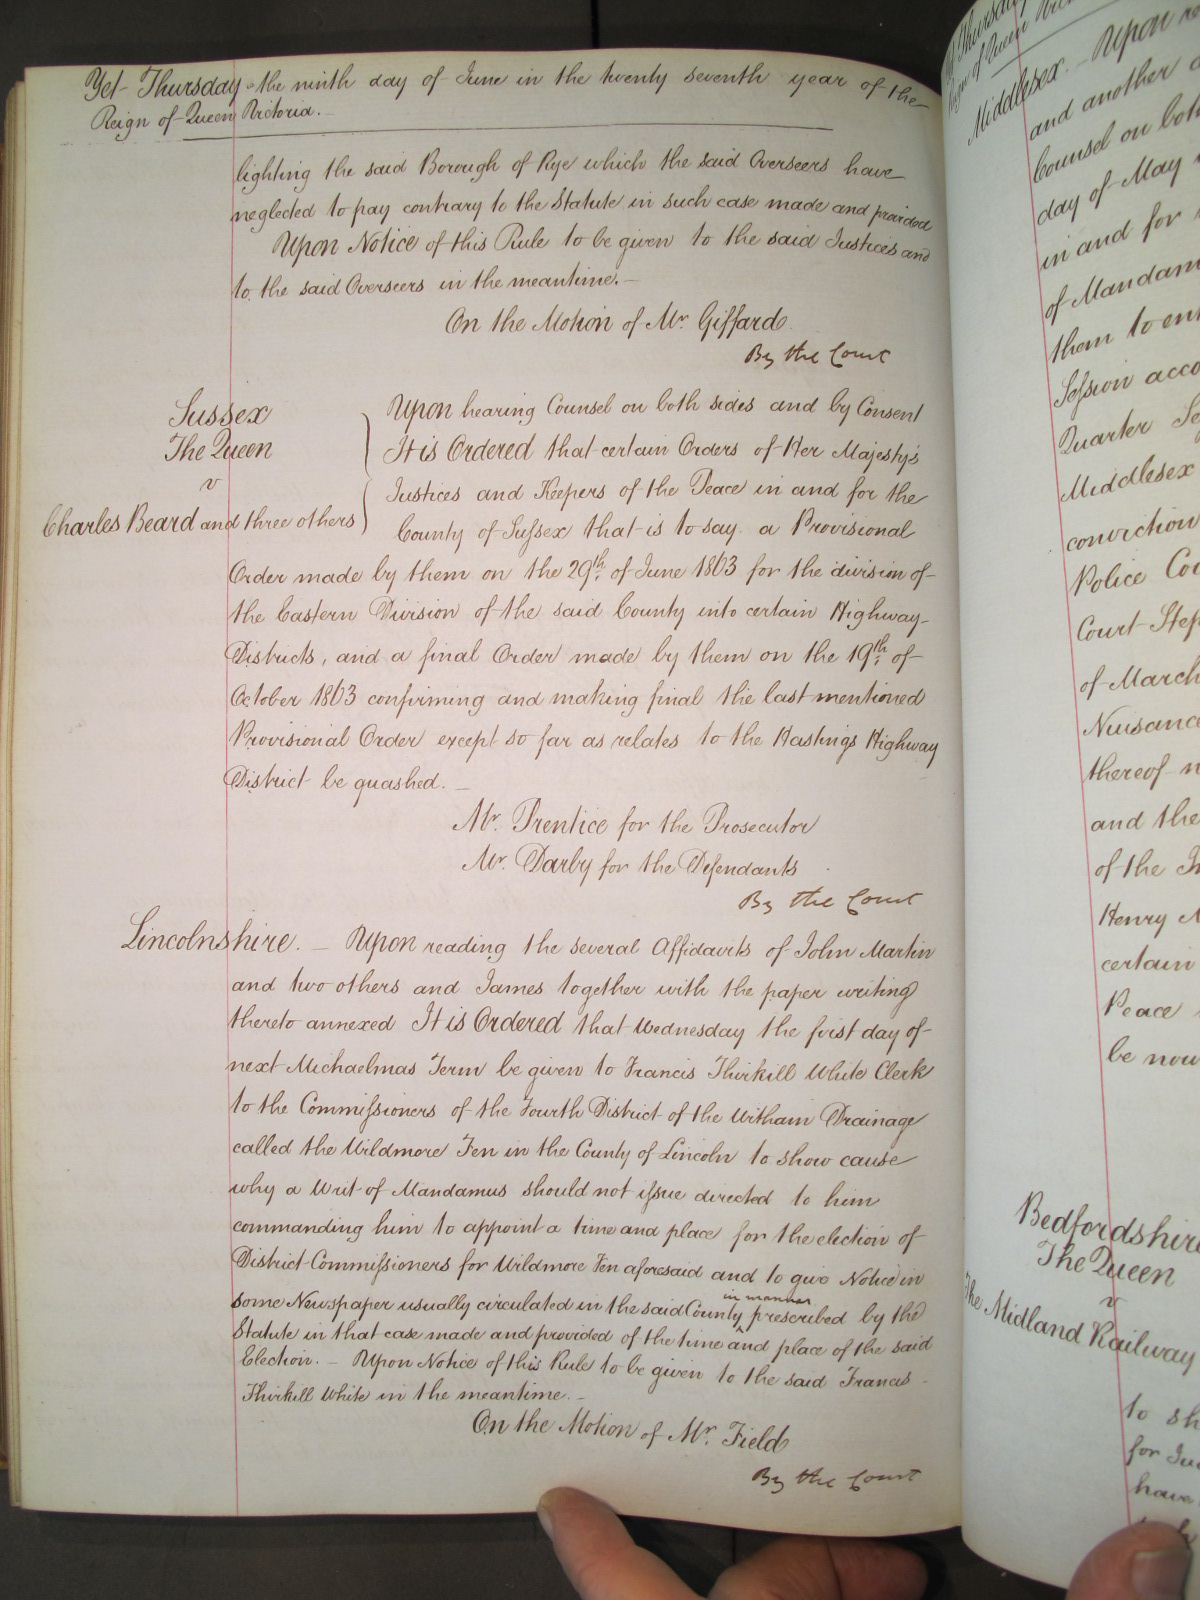 Yet Thursday the ninth day of June in the twenty seventh year of the
Reign of Queen Victoria.
lighting the said Borough of Rye which the said Overseers have
neglected to pay contrary to the Statute in such case made and provided
Upon Notice of this Rule to be given to the said Justices and
to the said Overseers in the meantime.
On the Motion of Mr Giffard
By the Court
Sussex
The Queen
v
Charles Beard and three others
Upon hearing Counsel on both sides and by Consent
It is Ordered that certain Orders of Her Majesty's
Justices and Keepers of the Peace in and for the
County of Sussex that is to say a Provisional
Order made by them on the 29th of June 1863 for the division of
the Eastern Division of the said County into certain Highway
Districts, and a final Order made by them on the 19th of
October 1863 confirming and making final the last mentioned
Provisional Order except so far as relates to the Hastings Highway
District be quashed.
Mr. Prentice for the Prosecutor
Mr. Darby for the Defendants
By the Court
Lincolnshire. — Upon reading the several Affidavits of John Martin
and two others and James together with the paper writing
thereto annexed It is Ordered that Wednesday the first day of
next Michaelmas Term be given to Francis Thirkill White Clerk
to the Commissioners of the Fourth District of the Witham Drainage
called the Wildmore Fen in the County of Lincoln to show cause
why a Writ of Mandamus should not issue directed to him
commanding him to appoint a time and place for the election of
District Commissioners for Wildmore Fen aforesaid and to give Notice in
in manner
some Newspaper usually circulated in the said County prescribed by the
Statute in that case made and provided of the time and place of the said
Election. — Upon Notice of this Rule to be given to the said Francis
Thirkill White in the meantime.
On the Motion of Mr. Field
By the Court
Middlesex. — Upon
and another
Counsel on both
day of May
in and for
of Mandam
them to en
Session acco
Quarter Se
Middlesex
conviction
Police Cou
Court Step
of March
Nuisance
thereof
and the
of the
Henry
certain
Peace
be now
Bedfordshire
The Queen
v
The Midland Railway
to sh
for Ju
have